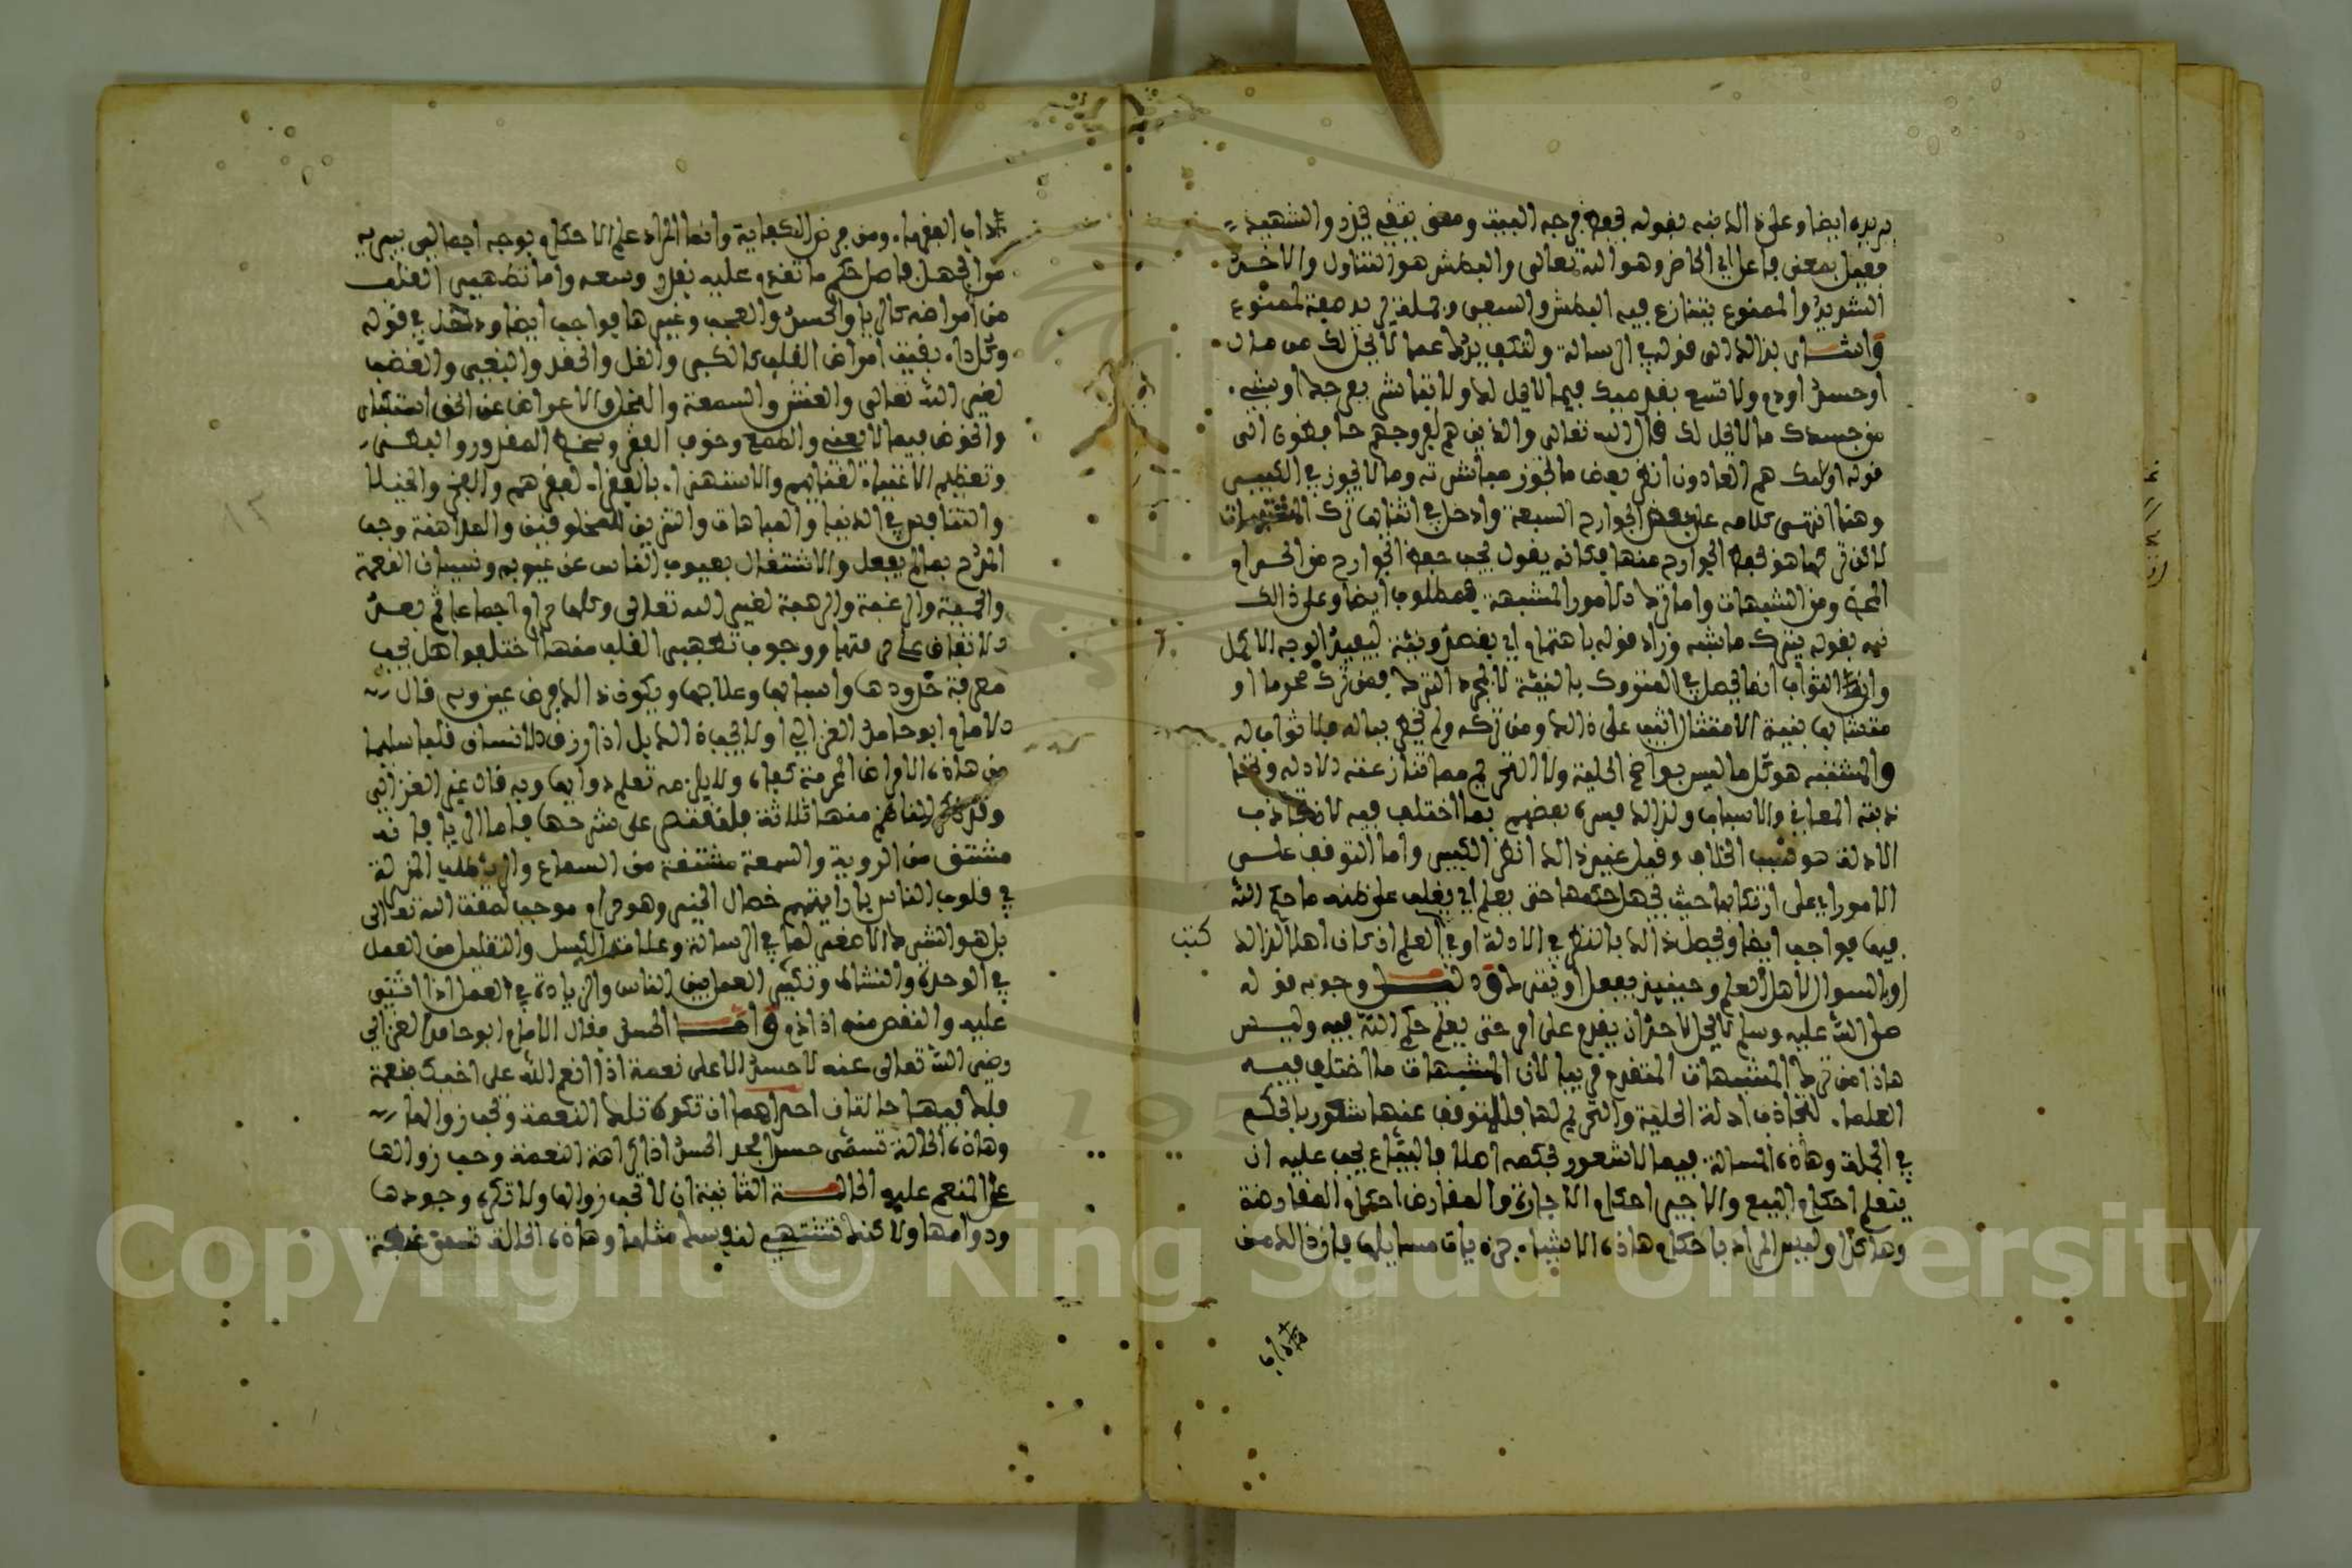 يريده ايضا وعلى ذالك نبه بقوله فحفظ فرجه البيت ومعنى يتقي يحذر والشهيد
فعيل بمعنى فاعل اي الحاضر وهو الله تعالى والبطش هو التناول والاخذ
الشديد والممنوع يتنازع فيه البطش والسعي وجملة يريد صفة لممنوع
واشار بذالك الى قوله في الرسالة ولتكف يدك عما لا يحل لك من مال
او جسد او دم ولا تسع بقدميك فيما لا يحل لك ولا تباشر بفرجك او بشيء
من جسدك ما لا يحل لك قال الله تعالى والذين هم لفروجهم حافظون الى
قوله اولئك هم العادون انظر بعض ما تجوز مباشرته وما لا يجوز في الكبير
وهنا انتهى كلامه على بعض الجوارح السبعة وادخل في اثنائها ترك
يجب حفظ الجوارح من الحرام
ومن الشبهات واما ترك الامور المشبهة فمطلوب ايضا وعلى ذالك
نبه بقوله يترك ما شبه وزاد قوله باهتمام اي بقصد ونية ليفيد الوجه الاكمل
الثواب انما يحصل في المتروك بالنية لا بمجرد الترك فمن ترك محرما او
مشتبها بنية الامتثال اثيب على ذالك ومن تركه ولم يخطر بباله فلا ثواب له
والمشتبه هو كل ما ليس بواضح الحلية ولا التحريم مما تنازعته الادلة
المعاني والاسباب ولذالك فسره بعضهم بما اختلف فيه لان تجاذب
الادلة هو سبب الخلاف وقيل غير ذالك انظر الكبير واما التوقف على
الامور اي على ارتكابها حيث يجهل حكمها حتى يعلم اي يغلب على ظنه ما حكم الله
فيها فواجب ايضا ويحصل ذالك بالنظر في الادلة او في العلم ان كان اهلا لذالك
كتب
او بالسؤال لاهل العلم وحينئذ يفعل او يترك ودليل وجوبه قوله
صلى الله عليه وسلم لا يحل لاحد ان يقدم على امر حتى يعلم حكم الله فيه وليس
هاذا من ترك المشتبهات المتقدم قريبا لان المشبهات ما اختلف فيه
العلماء لتجاذب ادلة الحلية والتحريم لها فالمتوقف عنها شعور بالحكم
في الجملة وهاذه المسالة فيما لا شعور بحكمه اصلا فالبياع يجب عليه ان
يتعلم احكام البيع والاجير احكام الاجارة والمقارض احكام المقارضة
وهاكذا وليس المراد باحكام هاذه الاشياء جزءيات مسايلها فان ذالك من
داب الفقهاء ومن فرض الكفاية وانما المراد علم الاحكام بوجه اجمالي يبريه
من الجهل باصل حكم ما تقدم عليه بقدر وسعه واما تطهير القلب
من امراضه كالرياء والحسد والعجب وغيرها فواجب ايضا ودخل في قوله
وكل داء بقية امراض القلب كالكبر والغل والحقد والبغي والغضب
لغير الله تعالى والغش والسمعة والبخل والاعراض عن الحق استكبارا
والخوض فيما لا يعني والطمع وخوف الفقر وسخط المقدور والبطر
وتعظيم الاغنياء لغناهم والاستهزاء بالفقراء لفقرهم والفخر والخيلاء
والتنافس في الدنيا والمباهات والتزين للمخلوقين والمداهنة وحب
المدح بما لم يفعل والاشتغال بعيوب الناس عن عيوبه ونسيان النعمة
والحمية والرغبة والرهبة لغير الله تعالى وكلها حرام اجماعا ثم بعد
الاتفاق على حرمتها ووجوب تطهير القلب منها اختلفوا هل يجب
معرفة حدودها واسبابها وعلاجها ويكون ذالك فرض عين وبه قال
الامام ابو حامد الغزالي او لا يجب ذالك بل اذا رزق الانسان قلبا سليما
من هاذه الامراض المحرمة كفاه ولا يلزمه تعلم دوائها وبه قال غير الغزالي
وقد ذكر الناظم منها ثلاثة فلنقتصر على شرحها فاما الرياء فانه
مشتق من الروية والسمعة مشتقة من السماع والرياء طلب المنزلة
في قلوب الناس باراءتهم خصال الخير وهو حرام موجب لمقت الله تعالى
بل هو الشرك الاصغر كما في الرسالة وعلامته الكسل والتقليل من العمل
في الوحدة والنشاط وتكثير العمل بين الناس والزيادة في العمل اذا اثني
عليه والنقص منه اذا ذم واما الحسد فقال الامام ابو حامد الغزالي
رضي الله تعالى عنه لا حسد الا على نعمة اذا انعم الله على اخيك بنعمة
فلك فيها حالتان احداهما ان تكره تلك النعمة وتحب زوالها
وهاذه الحالة تسمى حسدا فحد الحسد اذا كراهة النعمة وحب زوالها
على المنعم عليه الحالة الثانية ان لا تحب زوالها ولا تكره وجودها
ودوامها ولاكنك تشتهي لنفسك مثلها وهاذه الحالة تسمى غبطة